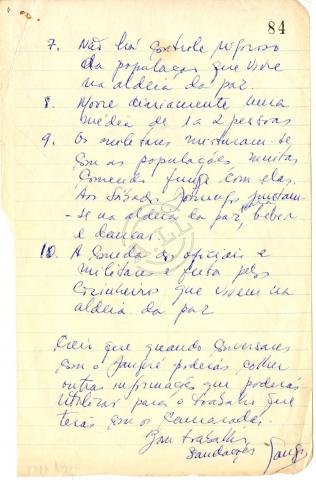 84
7. Não há controle rigoroso
da população que vive
na aldeia da paz.
8. Morre diariamente uma
média de 1 a 2 pessoas
9. Os militares misturam-se
com as populações muitas
comendo funge com elas.
Aos Sábados Domingos juntam
-se na aldeia da paz, beber
e dançar.
10. A comida dos oficiais e
militares é feita pelos
cozinheiros que vivem na
aldeia da paz
Creio que quando conversares
com o poderás colher
outras informações que poderás
utilizar para o trabalho que
terás com os camaradas.
Bom trabalho
Saudações